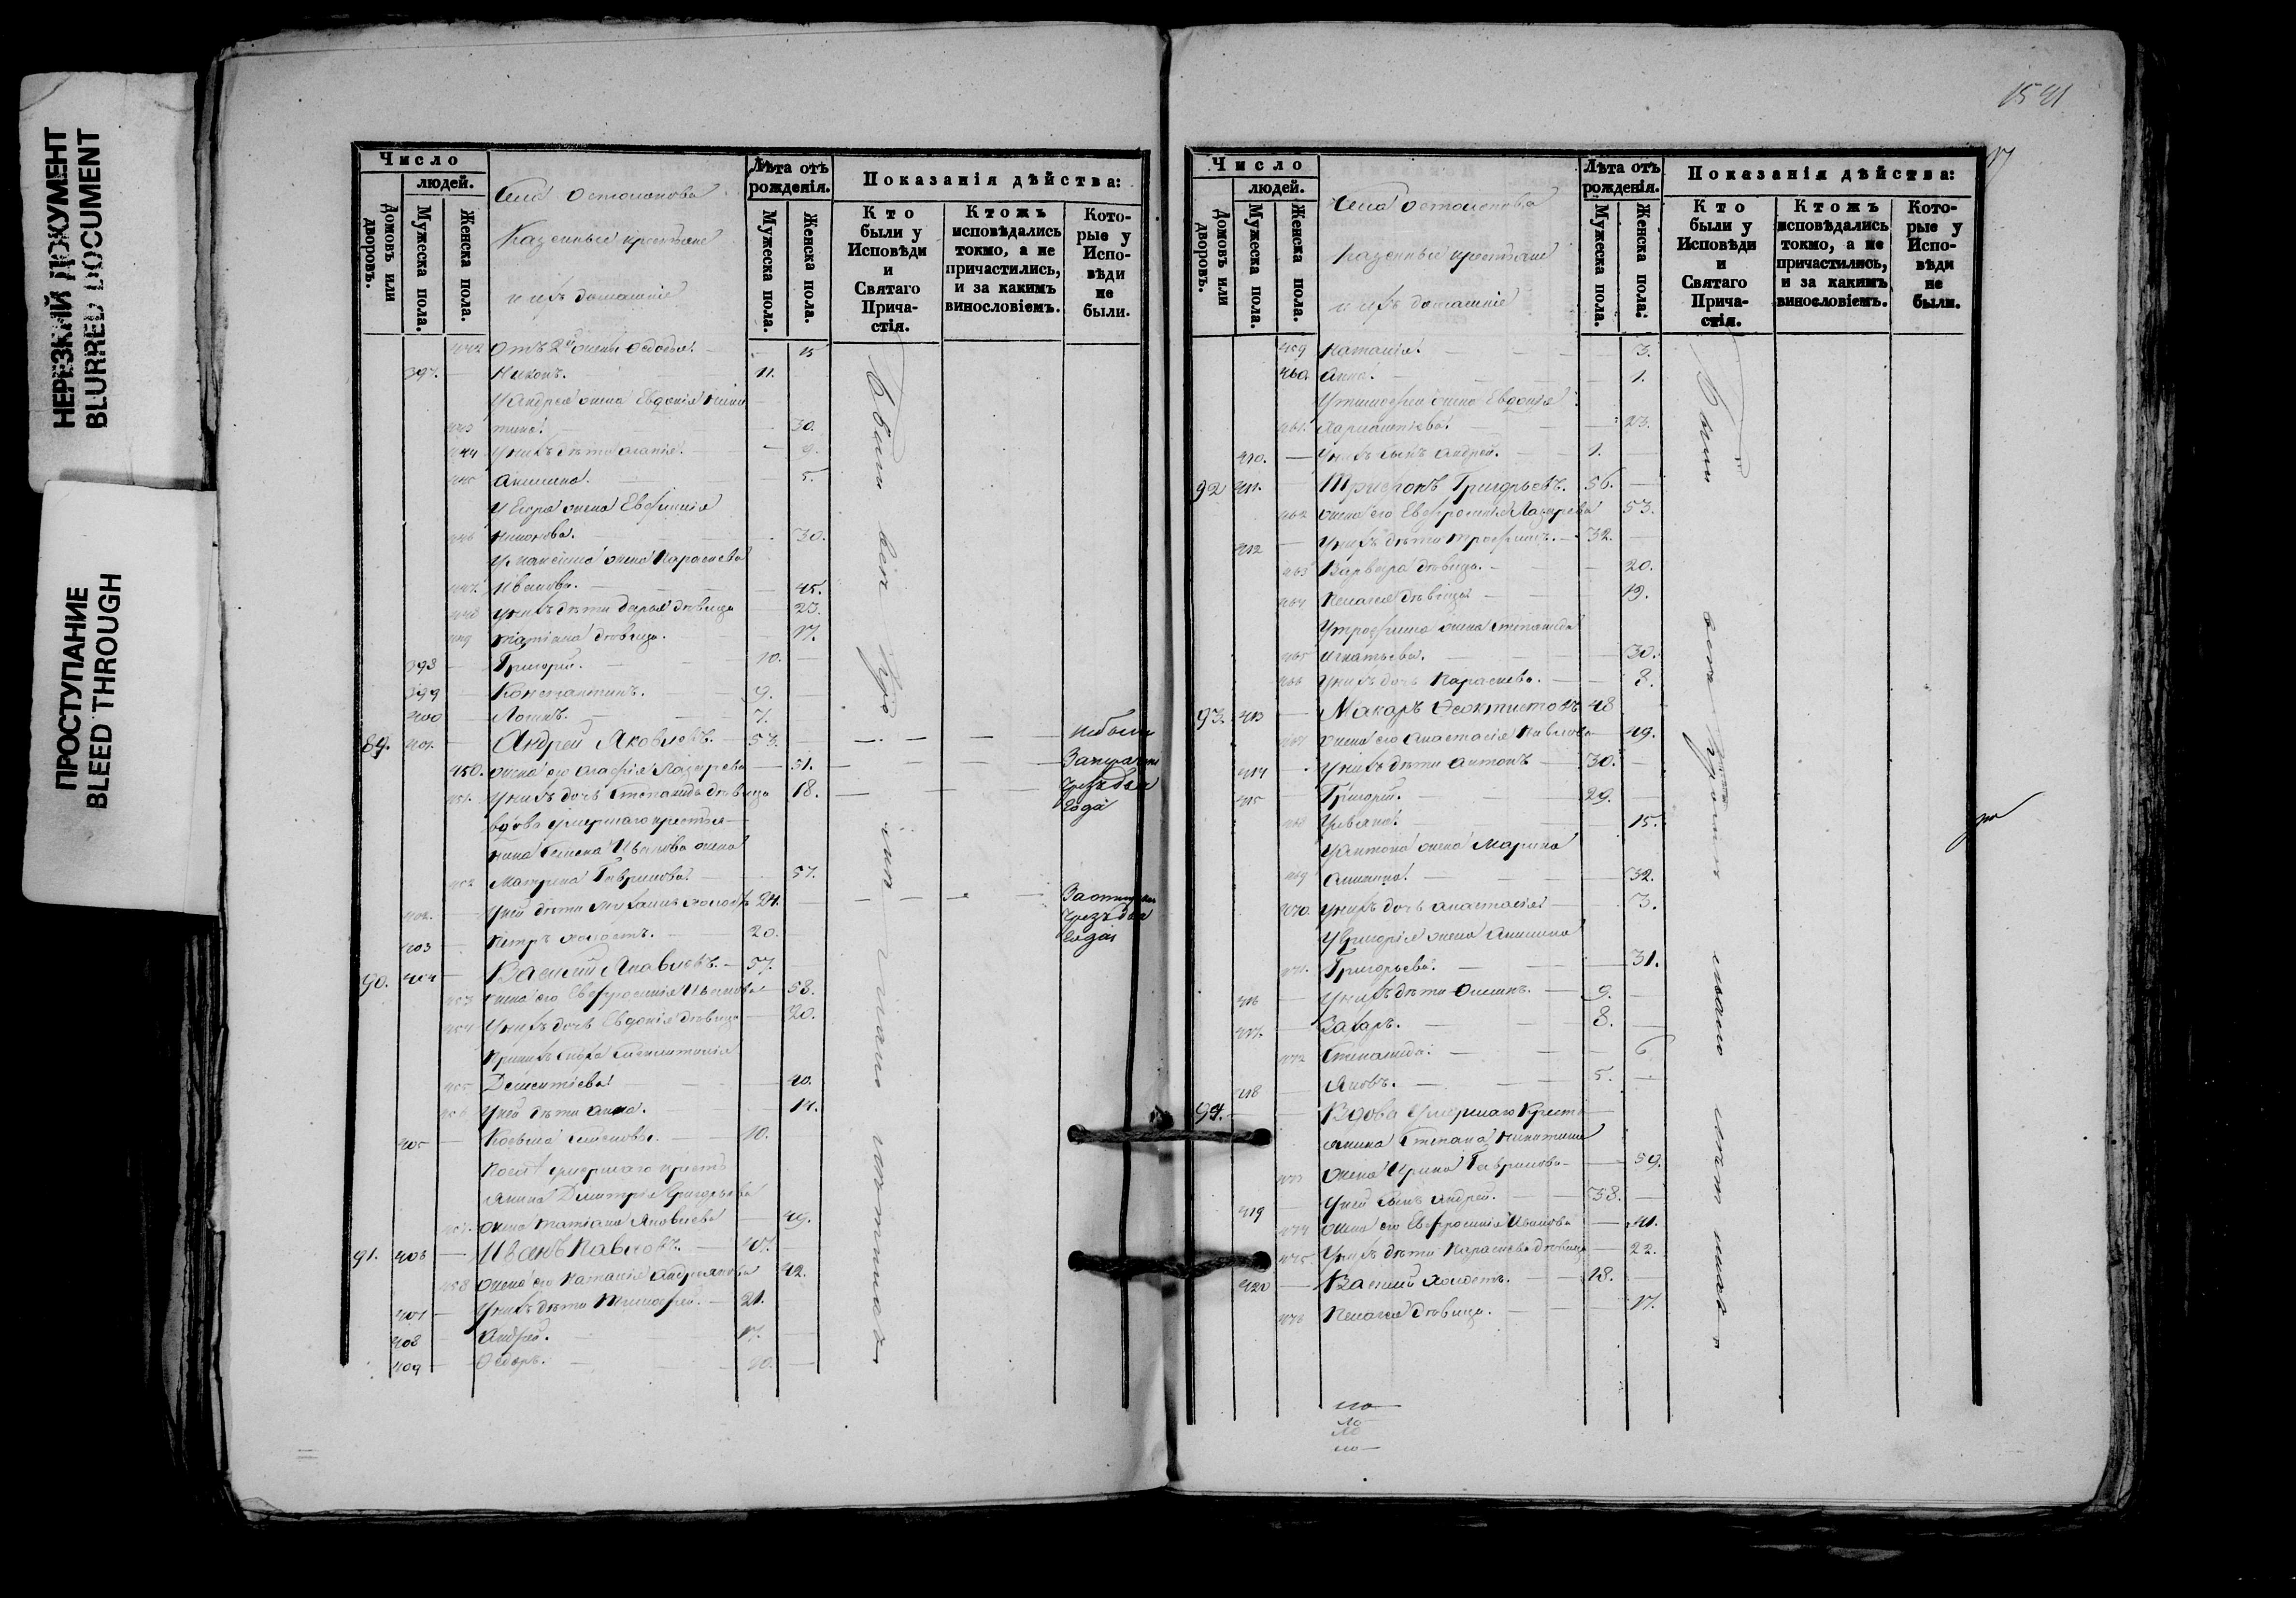 НЕРЕЗКИЙ ДОКУМЕНТ
BLURRED DOCUMENT
ПРОСТУПАНИЕ
BLEED THROUGH
Число
людей.
Домовъ или дворовъ.
Мужеска пола.
Женска пола.
Села Остоманова
Казенные крестьяне
и ихъ домашніе
Лѣта отъ рожденія.
Мужеска пола.
Женска пола.
Показанія дѣйства:
Кто были у Исповѣди и Святаго Причастія.
Ктожъ исповѣдались токмо, а не причастились, и за какимъ винословіемъ.
Которые у Исповѣди не были.
442 Отъ 2й жены Ѳедосья 15
397. Никонъ. 11.
У Андрея жена Евдокія Ники
443 тина. 30.
444 У нихъ дѣти Агапія. 9.
445 Акилина. 5.
У Егора жена Евфимія
446 30.
жена Параскева
447. Иванова. 45.
448 У нихъ дѣти Дарья дѣвица 23.
449 Татіана дѣвица. 17.
398 Григорій. 10.
399 Константинъ. 9.
400 7.
89. 401. Андрей Яковлевъ. 53. не были
450. жена его Агафія Лазарева 51.
451. У нихъ дочь Степанида дѣвица 18. чрезъ два
года
вдова умершаго крестья-
нина Семена Иванова жена
452 Матрона Гаврилова. 57.
402. У ней дѣти холостъ 24.
чрезъ два
403 Петръ холостъ. 20. года
90. 404 Василій Яковлевъ. 57.
453 жена его Евфросинія Иванова 58.
454 У нихъ дочь Евдокія дѣвица 20.
455 Дементіева 40.
456 У ней дѣти Анна. 14.
405 Косьма 10.
умершаго кресть
янина Димитрія Григорьева
457. жена Татіана Яковлева 49.
91. 406 Иванъ Павловъ. 47.
458 жена его Наталія Андреянова 42.
407 У нихъ дѣти Тимофей. 21.
408 Андрей. 17.
409 Ѳедоръ. 10.
1541
Число
людей.
Домовъ или дворовъ.
Мужеска пола.
Женска пола.
Села Остоманова
Казенные крестьяне
и ихъ домашніе
Лѣта отъ рожденія.
Мужеска пола.
Женска пола.
Показанія дѣйства:
Кто были у Исповѣди и Святаго Причастія.
Ктожъ исповѣдались токмо, а не причастились, и за какимъ винословіемъ.
Которые у Исповѣди не были.
459 Наталія. 3.
460 Анна. 1.
У Тимофея жена Евдокія
461. Харлампіева. 23.
410. У нихъ сынъ Андрей. 1.
92 411. Григорьевъ. 56.
462 жена его Евфросинія Лазарева 53.
412 У нихъ дѣти Трофимъ. 32.
463 Варвара дѣвица. 20.
464 Пелагея дѣвица 19.
У Трофима жена Степанида
465 Игнатьева. 30.
466 У нихъ дочь Параскева. 8.
93. 413 Макаръ Ѳеоктистовъ 48
467 жена его Анастасія Павлова 49.
414 У нихъ дѣти Антонъ 30.
415 Григорій. 29.
468 Ульяна. 15.
У Антона жена Марина
469 32.
470. У нихъ дочь Анастасія 3.
У Григорія жена Акилина
471. Григорьева. 31.
416 У нихъ дѣти 9.
417. Захаръ. 8.
472 Степанида. 6
418 Яковъ. 5.
94. Вдова умершаго кресть
янина Степана Никитина
473 жена Ирина Гаврилова 59.
419 У ней сынъ Андрей. 38.
474 жена его Евфросинія Иванова 41.
475 У нихъ дѣти Параскева дѣвица 22.
420 Василій холостъ. 18.
476 Пелагея дѣвица. 17.